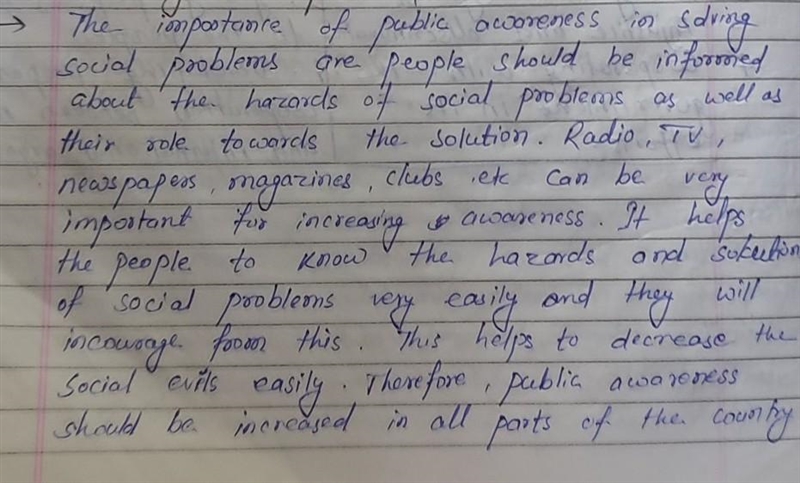 → The importance of public awareness in solving
social problems are people should be informed
about the hazards of social problems as well as
their role towards the solution. Radio, TV,
newspapers, magazines, clubs etc can be very
important for increasing awareness. It helps
the people to know the hazards and solution
of social problems very easily and they will
incourage from this. This helps to decrease the
social evils easily. Therefore, public awareness
should be increased in all parts of the country